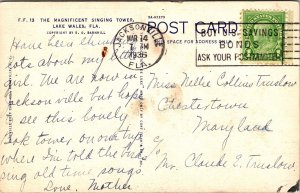 F.F. 13 THE MAGNIFICENT SINGING TOWER,
LAKE WALES, FLA.
POST CARD
JACKSONVILLE
MAR 14
FLA.
BUY U.S. SAVINGS
BONDS
ASK YOUR POSTMASTER
Have been thinking
lots about my
girl. We are now in
Jacksonville but hope
to see this lovely
tower on our trip
where I'm told the bird
sing old time songs.
Love. Mother
Miss Nellie Collins Truslow
Chestertown
Maryland
Mr. Claude E. Truslow